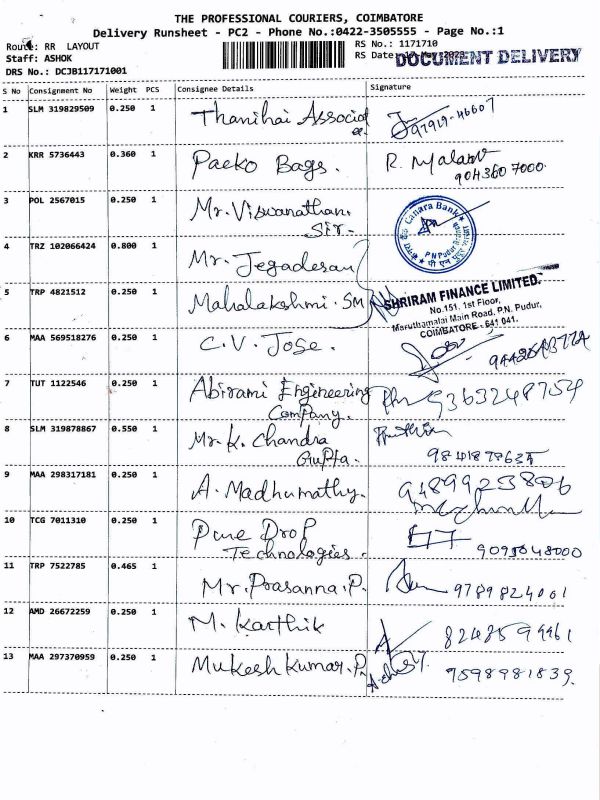 THE PROFESSIONAL COURIERS, COIMBATORE
Delivery Runsheet - PC2 - Phone No.:0422-3505555 - Page No.:1
Route: RR LAYOUT
RS No.: 1171710
Staff: ASHOK
RS Date: DOCUMENT DELIVERY
DRS No.: DCJB117171001
S No Consignment No Weight PCS Consignee Details Signature
1 SLM 319829509 0.250 1 Thanihai Associa 97919-46607
2 KRR 5736443 0.360 1 Paeko Bags. R.
3 POL 2567015 0.250 1 Mr. Viswanathan. Canara Bank
Sir.
4 TRZ 102066424 0.800 1 Mr. Jegadesan
5 TRP 4821512 0.250 1 Mahalakshmi. SM SHRIRAM FINANCE LIMITED.
No.151, 1st Floor,
Maruthamalai Main Road, P.N. Pudur,
COIMBATORE - 641 041.
6 MAA 569518276 0.250 1 C. V. Jose.
7 TUT 1122546 0.250 1 Abirami Engineering
Company.
8 SLM 319878867 0.550 1 Mr. K. Chandra
Gupta.
9 MAA 298317181 0.250 1 A. Madhumathy.
10 TCG 7011310 0.250 1 Pure Drop
Technologies.
11 TRP 7522785 0.465 1 Mr. Prasanna. P. 9789824001
12 AMD 26672259 0.250 1 M. Karthik
13 MAA 297370959 0.250 1 Mukesh Kumar. P. 9598981839.